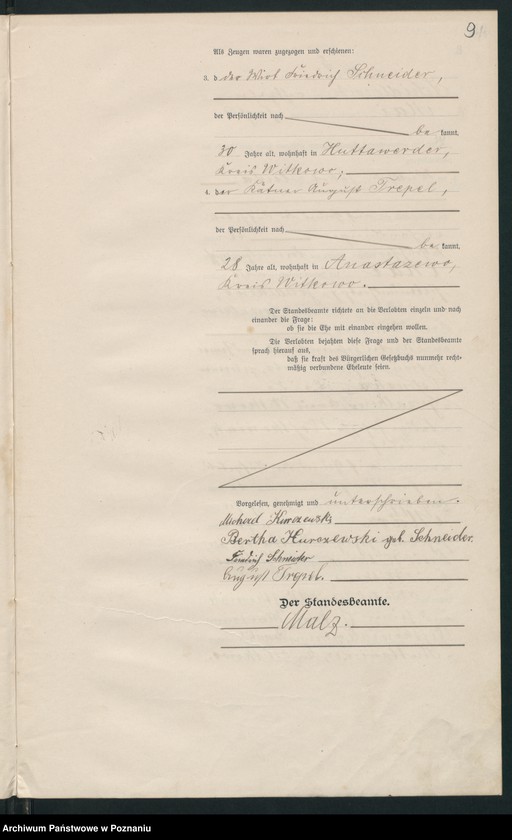 9
Als Zeugen waren zugezogen und erschienen:
3. der Wirt Friedrich Schneider,
der Persönlichkeit nach
be kannt,
30 Jahre alt, wohnhaft in Huttawerder,
Kreis Witkowo;
4. der Kätner August Trepel,
der Persönlichkeit nach
be kannt,
28 Jahre alt, wohnhaft in Anastazewo,
Kreis Witkowo.
Der Standesbeamte richtete an die Verlobten einzeln und nach
einander die Frage:
ob sie die Ehe mit einander eingehen wollen.
Die Verlobten bejahten diese Frage und der Standesbeamte
sprach hierauf aus,
daß sie kraft des Bürgerlichen Gesetzbuchs nunmehr recht-
mäßig verbundene Eheleute seien.
Vorgelesen, genehmigt und unterschrieben.
Michael Kurczewski
Bertha Kurczewski geb. Schneider.
Friedrich Schneider
August Trepel.
Der Standesbeamte.
Malz.
Archiwum Państwowe w Poznaniu